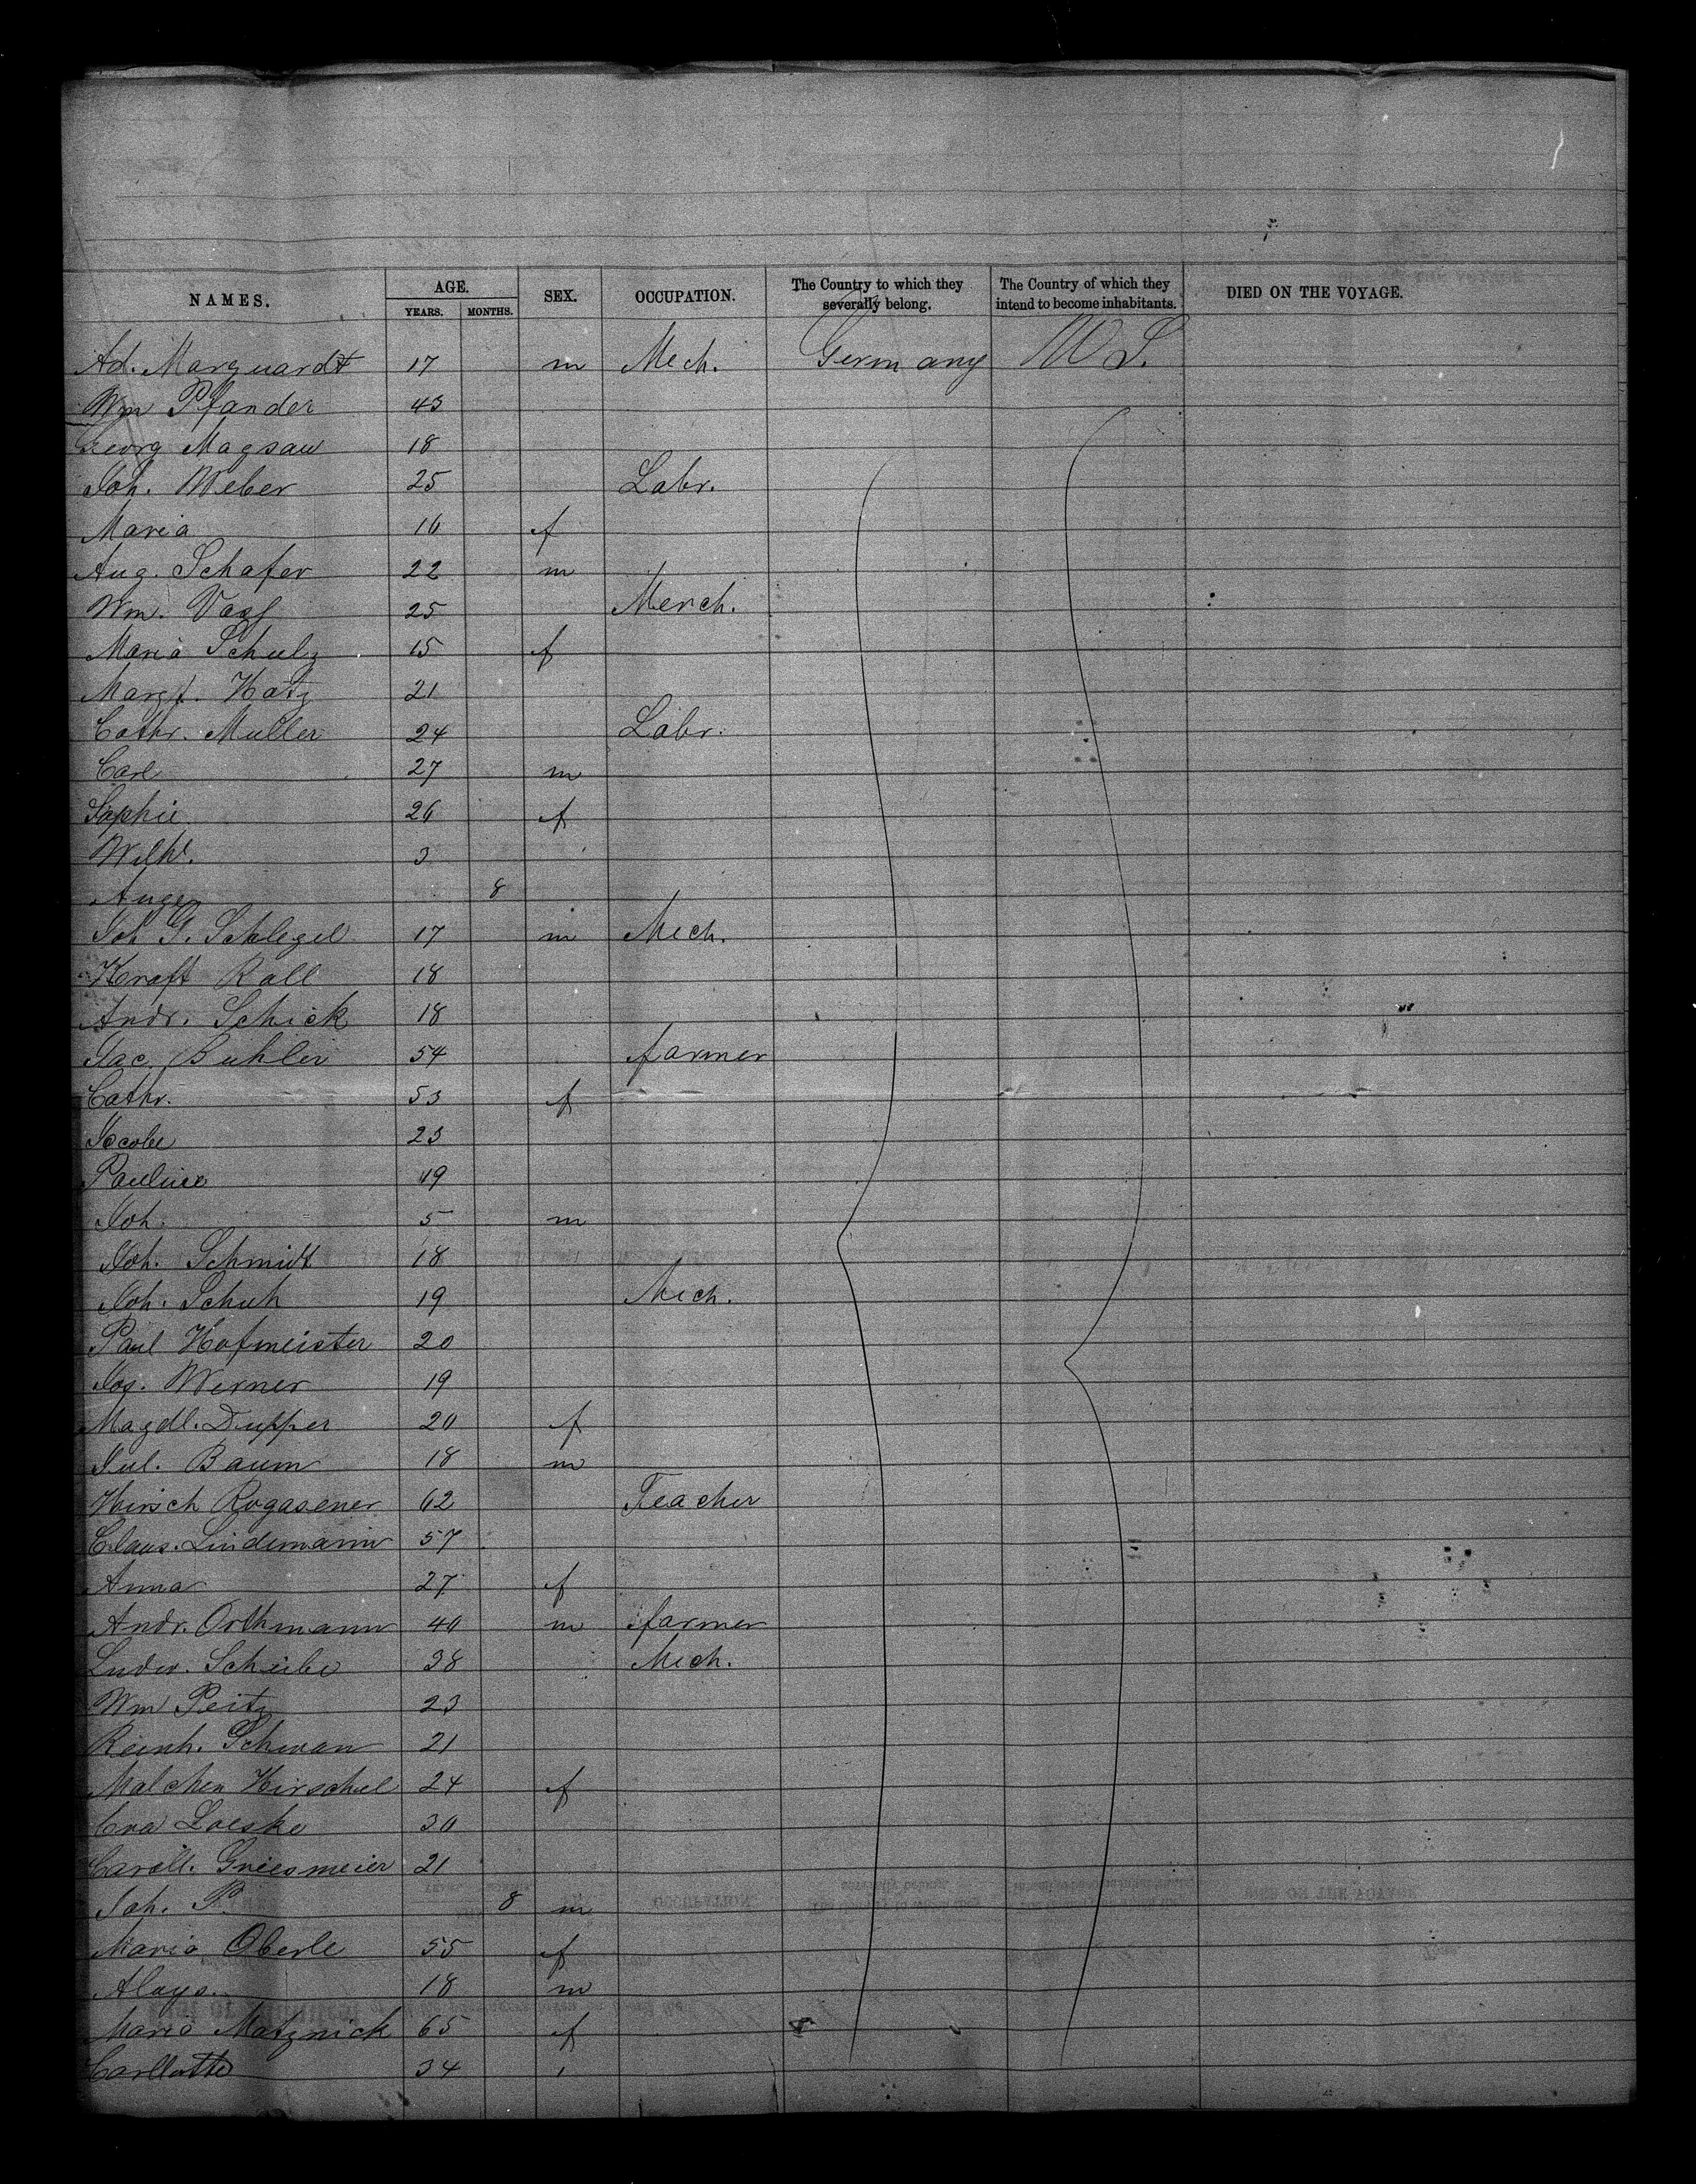 NAMES. AGE. SEX. OCCUPATION. The Country to which they severally belong. The Country of which they intend to become inhabitants. DIED ON THE VOYAGE.
YEARS. MONTHS.
Ad. Marquardt 17 m Mech. Germany U S.
Wm Pfander 43
Georg Magsaw 18
Joh. Weber 25 Labr.
Maria 16 f
Aug. Schafer 22 m
Wm. 25 Merch.
Maria Schulz 15 f
Margt. Hatz 21
Cathr. Muller 24 Labr.
Carl 27 m
Sophie 26 f
Wilh. 3
8
Joh G. Schlegel 17 m Mech.
Kraft Rall 18
Andr. Schick 18
Jac. Buhler 54 farmer
Cathr. 53 f
23
Pauline 19
Joh. 5 m
Joh. Schmidt 18
Joh. Schuh 19 Mech.
Paul Hofmeister 20
Jos. Werner 19
Magdl. Dupper 20 f
Jul. Baum 18 m
Hirsch Rogasener 62 Teacher
Claus. Lindemann 57
Anna 27 f
Andr. Orthmann 40 m farmer
Ludw. Scheibe 28 Mech.
Wm Peitz 23
Reinh. Schwan 21
Malchen Hirschel 24 f
Eva Loeske 30
Caroll. Griesmeier 21
Joh. P. 8 m
Maria Oberle 55 f
Aloys. 18 m
Maria Matznick 65 f
Carllotte 34